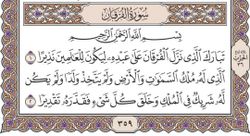 سُورَةُ الفُرْقَان
بِسْمِ اللَّهِ الرَّحْمَٰنِ الرَّحِيمِ
تَبَارَكَ الَّذِي نَزَّلَ الْفُرْقَانَ عَلَىٰ عَبْدِهِ لِيَكُونَ لِلْعَالَمِينَ نَذِيرًا ١
الَّذِي لَهُ مُلْكُ السَّمَاوَاتِ وَالْأَرْضِ وَلَمْ يَتَّخِذْ وَلَدًا وَلَمْ يَكُن
لَّهُ شَرِيكٌ فِي الْمُلْكِ وَخَلَقَ كُلَّ شَيْءٍ فَقَدَّرَهُ تَقْدِيرًا ٢
٣٥٩